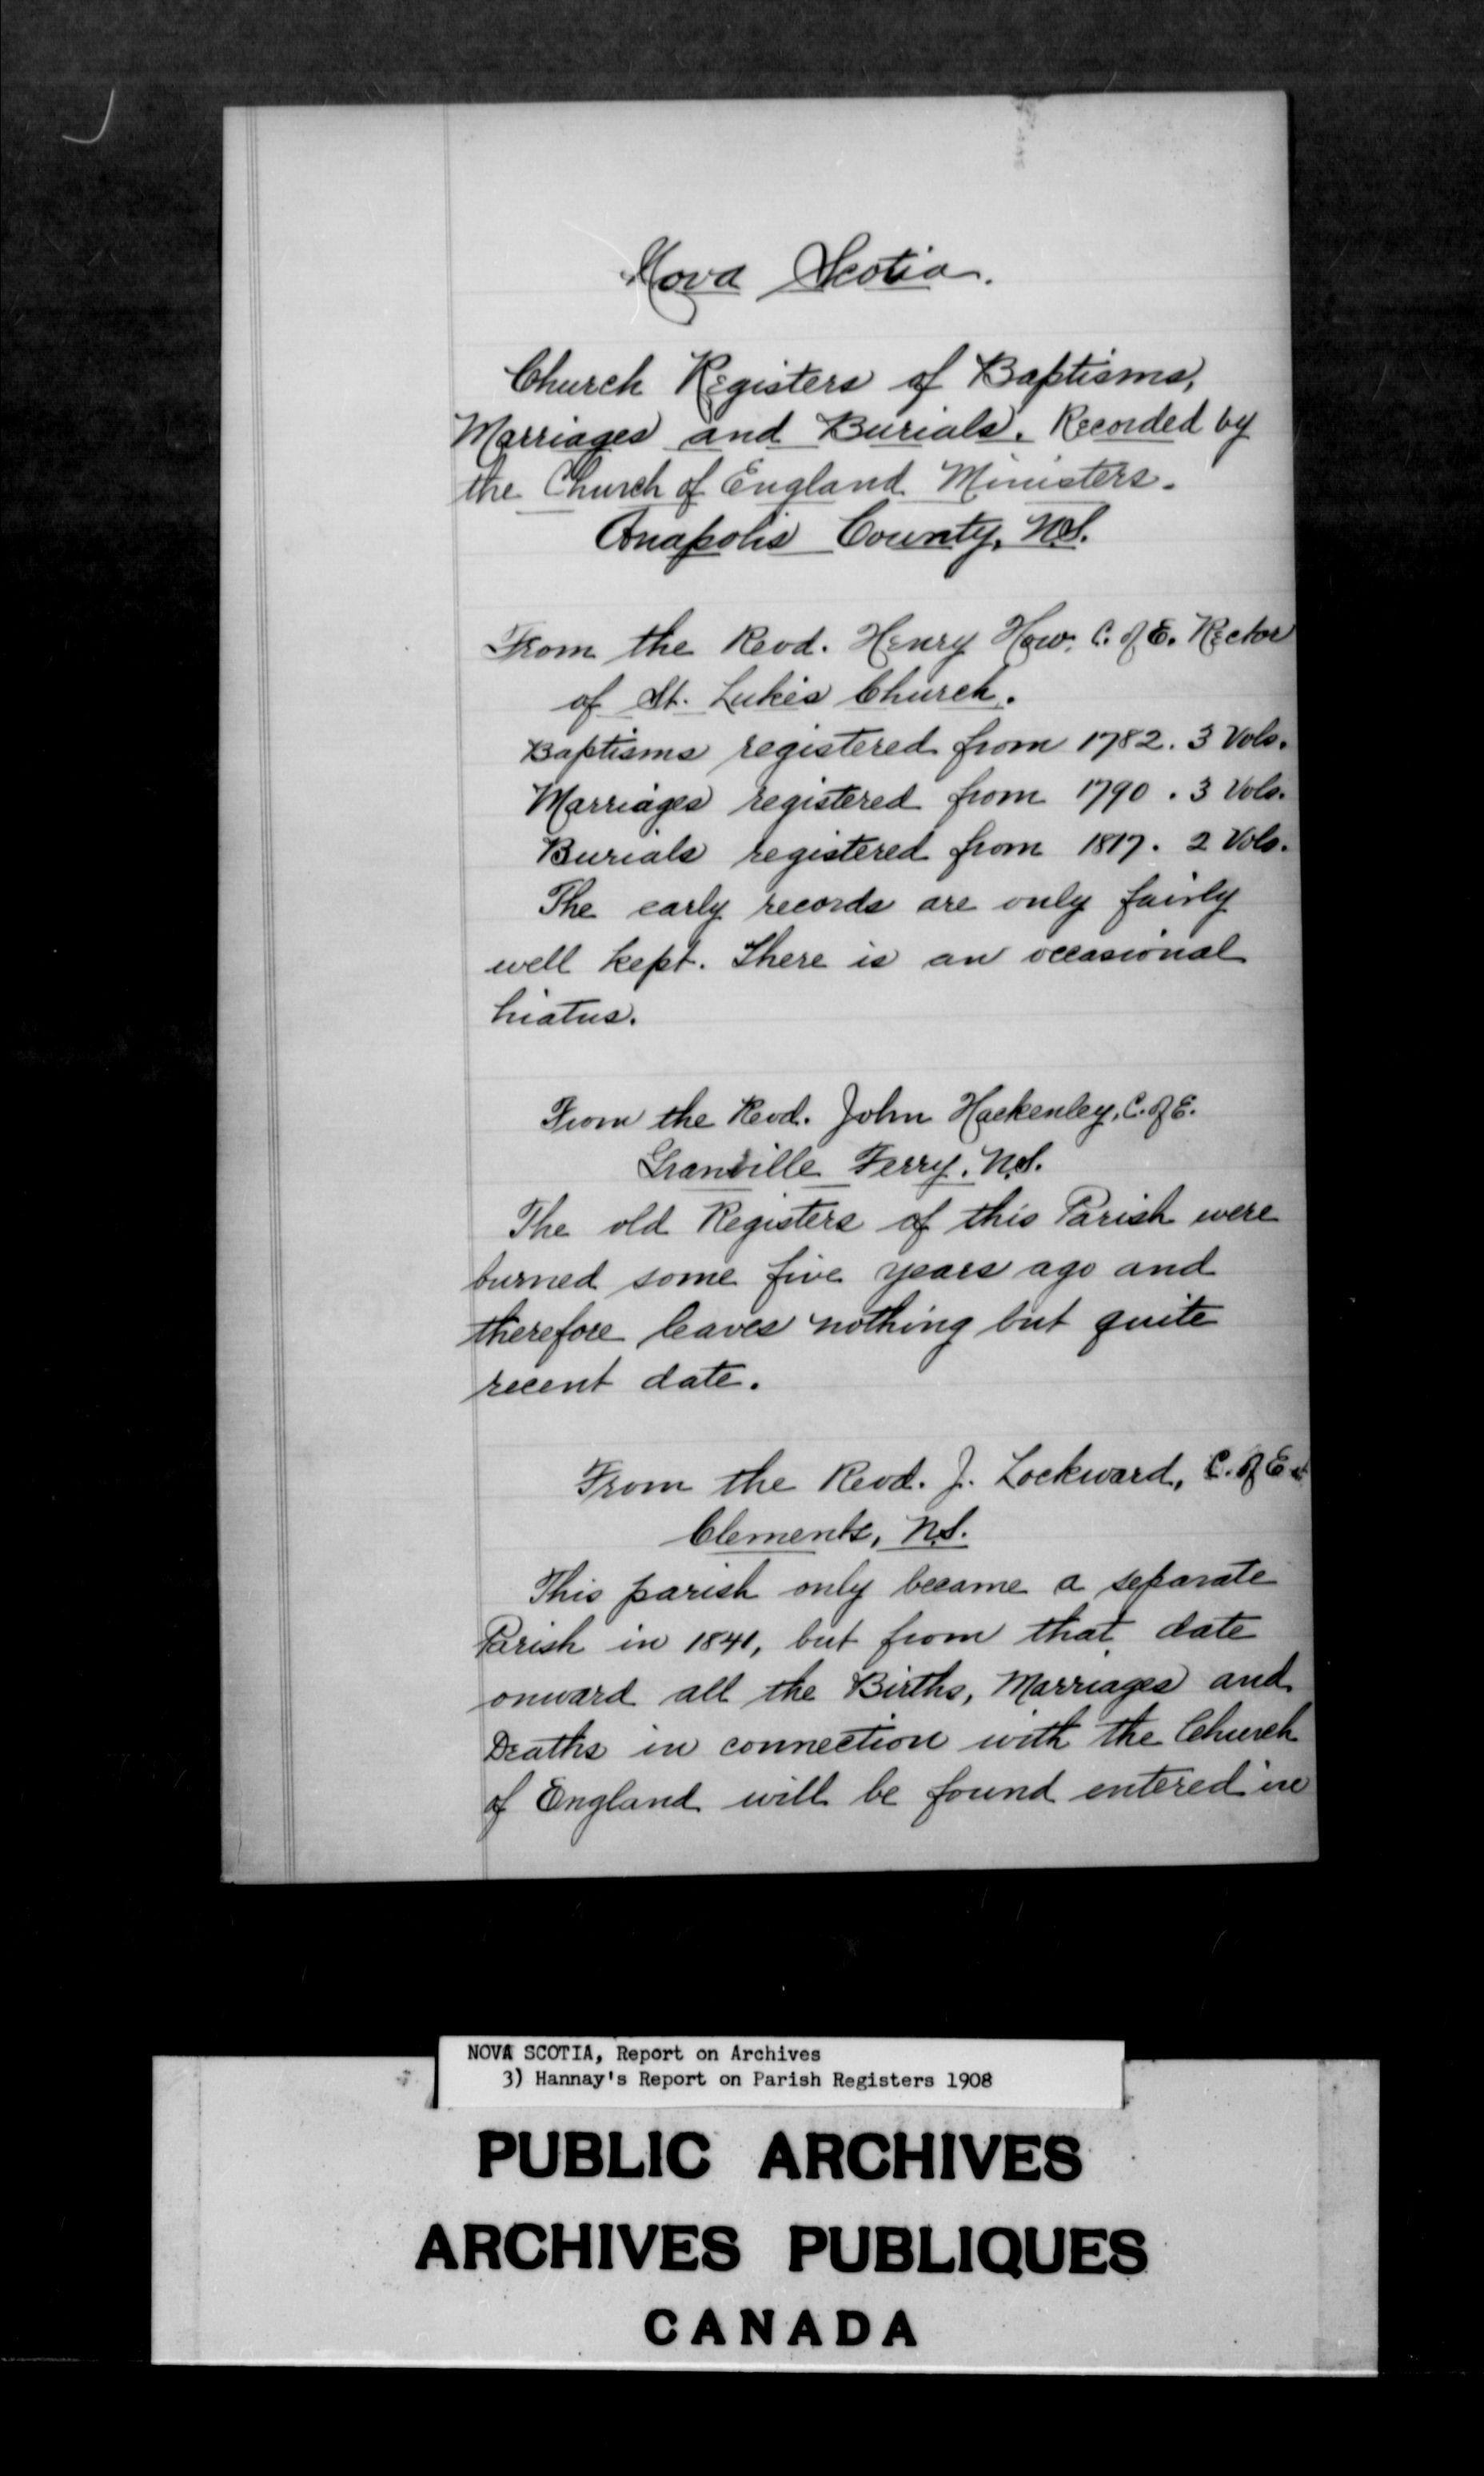 Nova Scotia.
Church Registers of Baptisms,
Marriages and Burials. Recorded by
the Church of England Ministers.
Anapolis County, N.S.
From the Revd. Henry How, C. of E. Rector
of St. Luke's Church.
Baptisms registered from 1782. 3 Vols.
Marriages registered from 1790. 3 Vols.
Burials registered from 1817. 2 Vols.
The early records are only fairly
well kept. There is an occasional
hiatus.
From the Revd. John Hackenley, C. of E.
Granville Ferry, N.S.
The old Registers of this Parish were
burned some five years ago and
therefore leaves nothing but quite
recent date.
From the Revd. J. Lockward, C. of E.
Clements, N.S.
This parish only became a separate
Parish in 1841, but from that date
onward all the Births, Marriages and
Deaths in connection with the Church
of England will be found entered in
NOVA SCOTIA, Report on Archives
3) Hannay's Report on Parish Registers 1908
PUBLIC ARCHIVES
ARCHIVES PUBLIQUES
CANADA